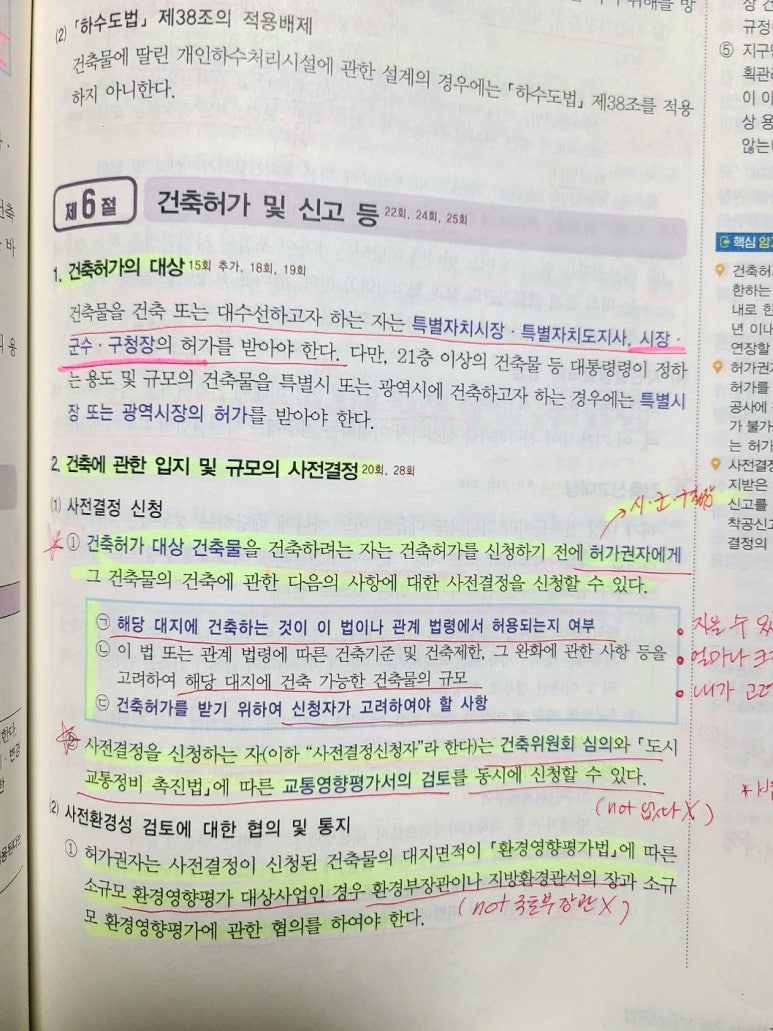 위해를 방
(2) 「하수도법」 제38조의 적용배제
건축물에 딸린 개인하수처리시설에 관한 설계의 경우에는 「하수도법」 제38조를 적용
하지 아니한다.
제6절 건축허가 및 신고 등 22회, 24회, 25회
1. 건축허가의 대상 15회 추가, 18회, 19회
건축물을 건축 또는 대수선하고자 하는 자는 특별자치시장·특별자치도지사, 시장·
군수·구청장의 허가를 받아야 한다. 다만, 21층 이상의 건축물 등 대통령령이 정하
는 용도 및 규모의 건축물을 특별시 또는 광역시에 건축하고자 하는 경우에는 특별시
장 또는 광역시장의 허가를 받아야 한다.
2. 건축에 관한 입지 및 규모의 사전결정 20회, 28회
(1) 사전결정 신청
→시·군·구청장
① 건축허가 대상 건축물을 건축하려는 자는 건축허가를 신청하기 전에 허가권자에게
그 건축물의 건축에 관한 다음의 사항에 대한 사전결정을 신청할 수 있다.
㉠ 해당 대지에 건축하는 것이 이 법이나 관계 법령에서 허용되는지 여부
㉡ 이 법 또는 관계 법령에 따른 건축기준 및 건축제한, 그 완화에 관한 사항 등을
고려하여 해당 대지에 건축 가능한 건축물의 규모
㉢ 건축허가를 받기 위하여 신청자가 고려하여야 할 사항
• 지을 수 있
• 얼마나 크
• 내가 고려
② 사전결정을 신청하는 자(이하 “사전결정신청자”라 한다)는 건축위원회 심의와 「도시
교통정비 촉진법」에 따른 교통영향평가서의 검토를 동시에 신청할 수 있다.
(not 없다 X)
(2) 사전환경성 검토에 대한 협의 및 통지
① 허가권자는 사전결정이 신청된 건축물의 대지면적이 「환경영향평가법」에 따른
소규모 환경영향평가 대상사업인 경우 환경부장관이나 지방환경관서의 장과 소규
모 환경영향평가에 관한 협의를 하여야 한다.
(not 국토부장관 X)
장 건
규정이
⑤ 지구단
획관리
이 이
상 용
않는
핵심 암
건축허
한하는
내로 한
년 이나
연장할
허가권자
허가를
공사에
가 불가
는 허가
사전결정
지받은
신고를
착공신고
결정의